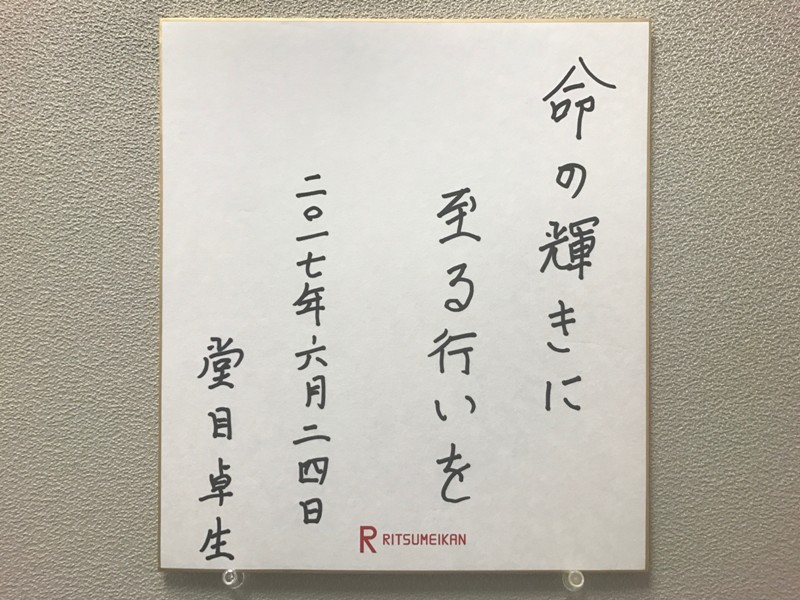 命の輝きに
至る行いを
二〇一七年六月二四日
堂目卓生
R RITSUMEIKAN